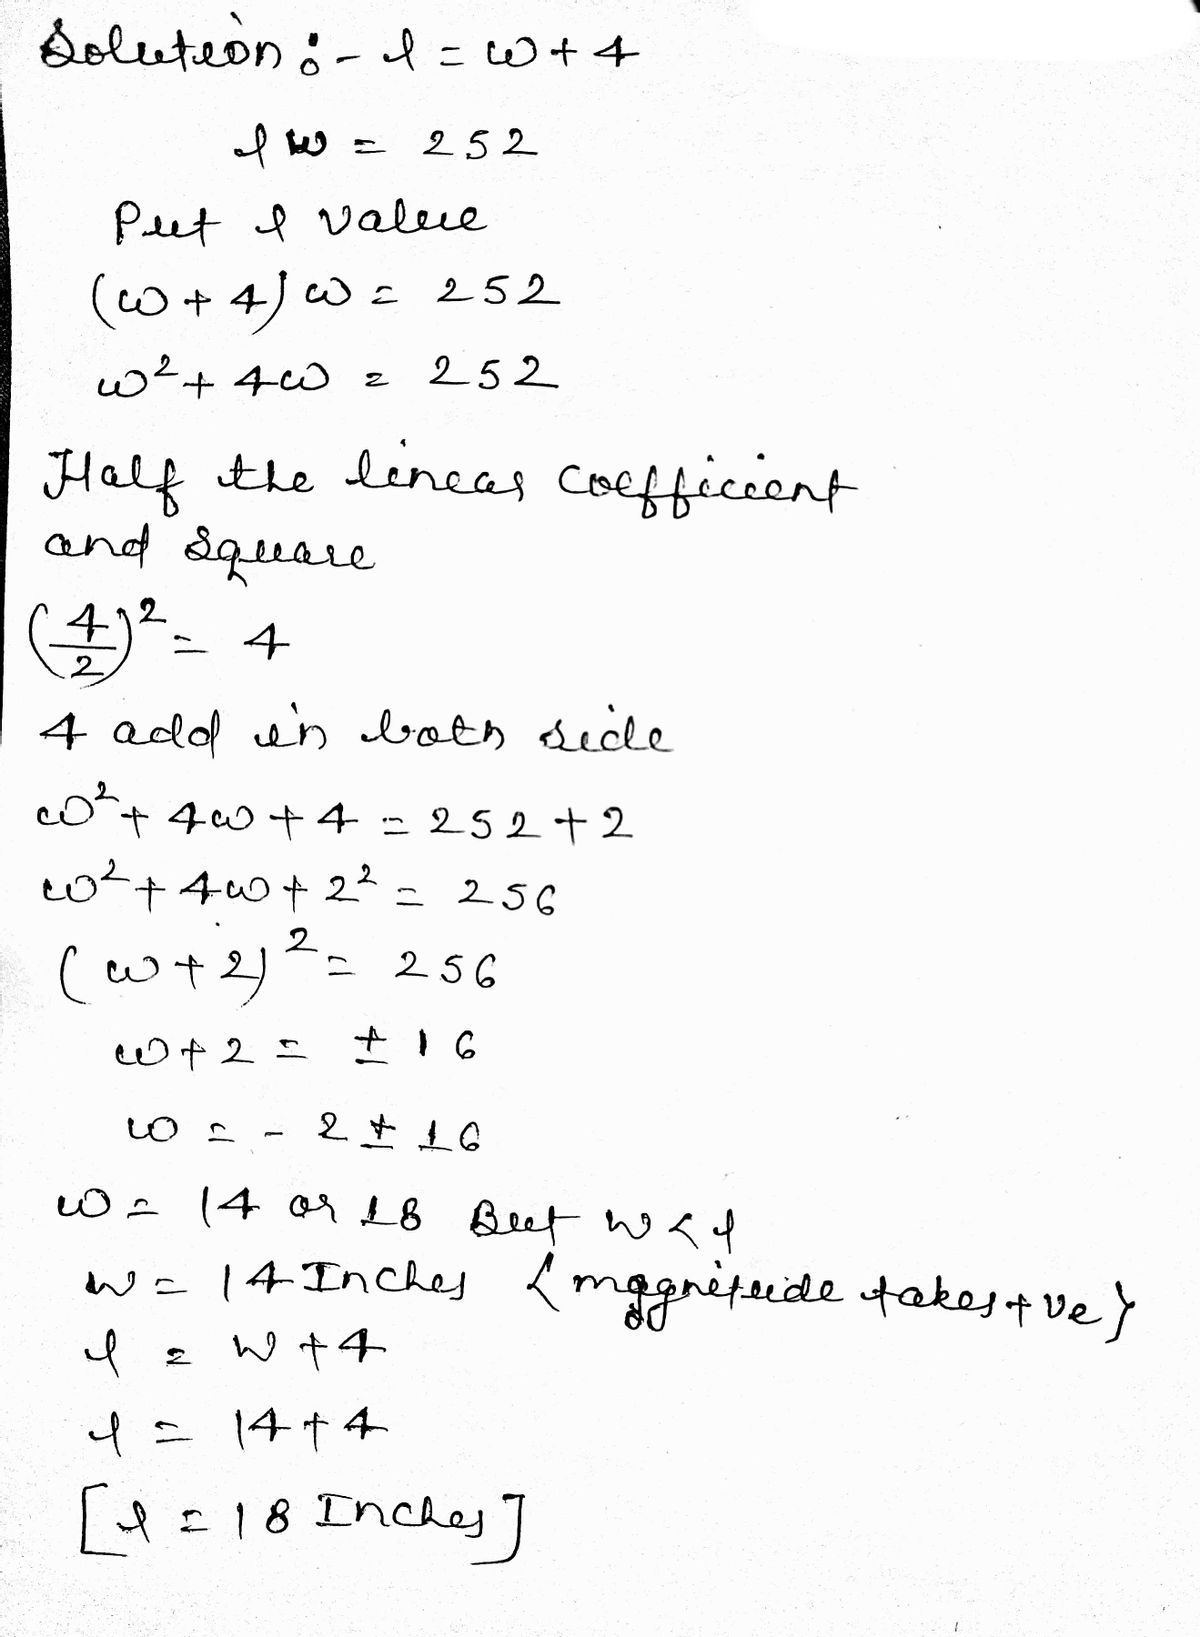 Solution :- l = w + 4
lw = 252
Put l value
(w + 4) w = 252
w² + 4w = 252
Half the linear coefficient
and square
(4/2)² = 4
4 add in both side
w² + 4w + 4 = 252 + 2
w² + 4w + 2² = 256
(w + 2)² = 256
w + 2 = ± 16
w = - 2 ± 16
w = 14 or 18 But w < l
w = 14 Inches {magnitude takes +ve}
l = w + 4
l = 14 + 4
[l = 18 Inches]